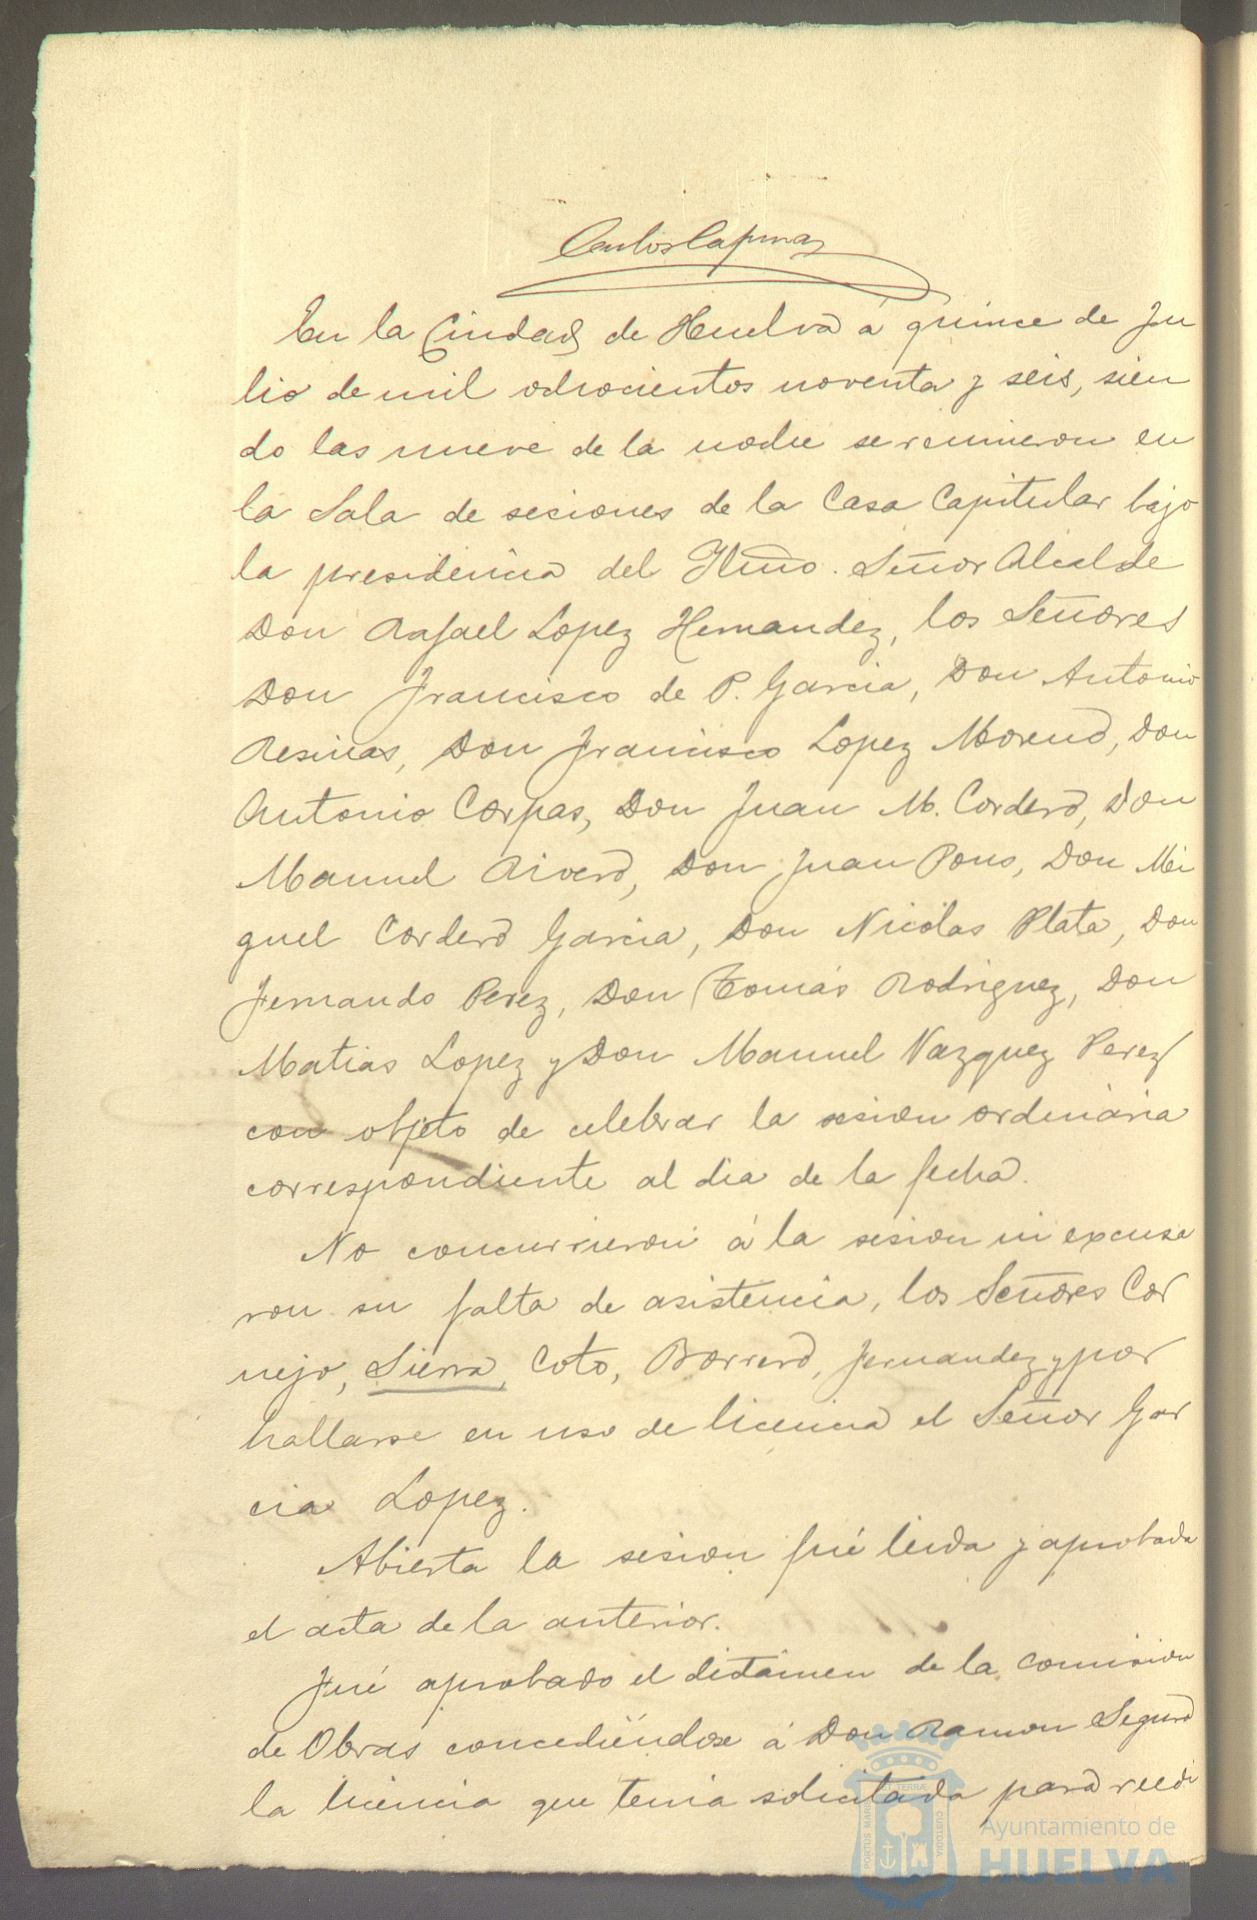 En la Ciudad de Huelva á quince de Ju
lio de mil ochocientos noventa y seis, sien
do las nueve de la noche se reunieron en
la Sala de sesiones de la Casa Capitular bajo
la presidencia del Iltmo. Señor Alcalde
Don Rafael Lopez Hernandez, los Señores
Don Francisco de P. Garcia, Don Antonio
Resinas, Don Francisco Lopez Moreno, Don
Antonio Corpas, Don Juan M. Cordero, Don
Manuel Rivero, Don Juan Pons, Don Mi
guel Cordero Garcia, Don Nicolas Plata, Don
Fernando Perez, Don Tomás Rodriguez, Don
Matias Lopez y Don Manuel Vazquez Perez
con objeto de celebrar la sesion ordinaria
correspondiente al dia de la fecha.
No concurrieron á la sesion ni excusa
ron su falta de asistencia, los Señores Cor
nejo, Sierra, Coto, Borrero, Fernandez y por
hallarse en uso de licencia el Señor Gar
cia Lopez.
Abierta la sesion fué leida y aprobada
el acta de la anterior.
Fué aprobado el dictámen de la comision
de Obras concediéndose á Don Ramon Seguro
la licencia que tenia solicitada para reedi
PORTUS MARIS ET TERRAE CUSTODIA
Ayuntamiento de
HUELVA